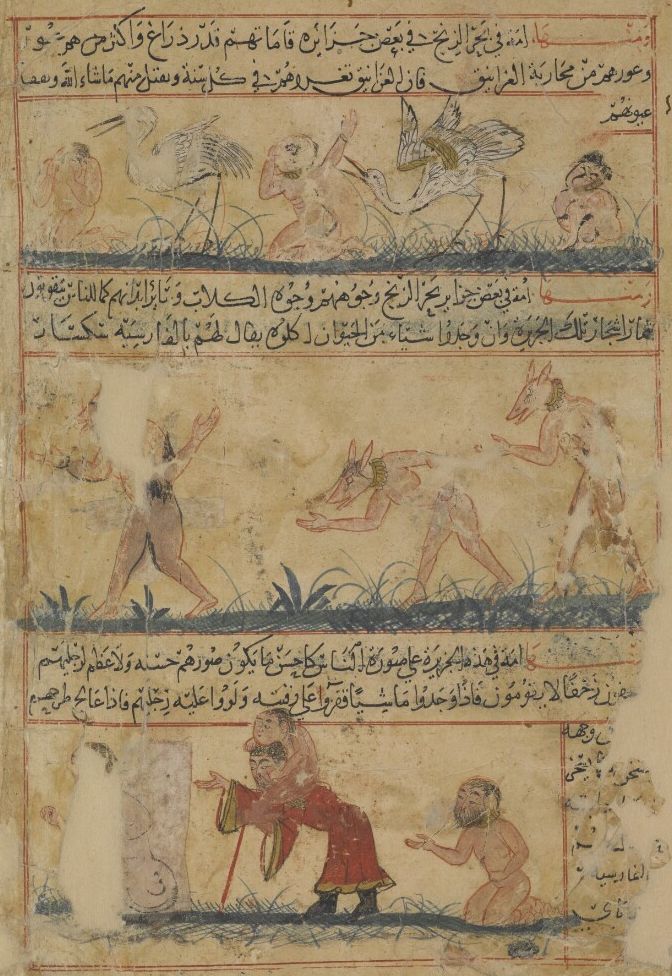 ومنـها امة في بحر الزنج في بعض جزايره قاماتهم قدر ذراع واكثرهم عور
وعورهم من محاربة الغرانيق فان الغرانيق تغزوهم في كل سنة ويقتل منهم ماشاء الله
عيونهم
ومنها امة في بعض جزاير بحر الزنج وجوههم وجوه الكلاب وسائر ابدانهم كما للناس يتقوتون
ثمار اشجار تلك الجزيرة وان وجدوا شياء من الحيوان اكلوه يقال لهم بالفارسية سكسار
امة في هذه الجزيرة على صورة الناس كاحسن ما يكون صورهم حسنه ولا عظام لارجلهم
زحفا لا يقومون فاذا وجدوا ماشيا قفزوا على رقبته ولووا عليه رجليهم فاذا عالج طرحهم
وجهه